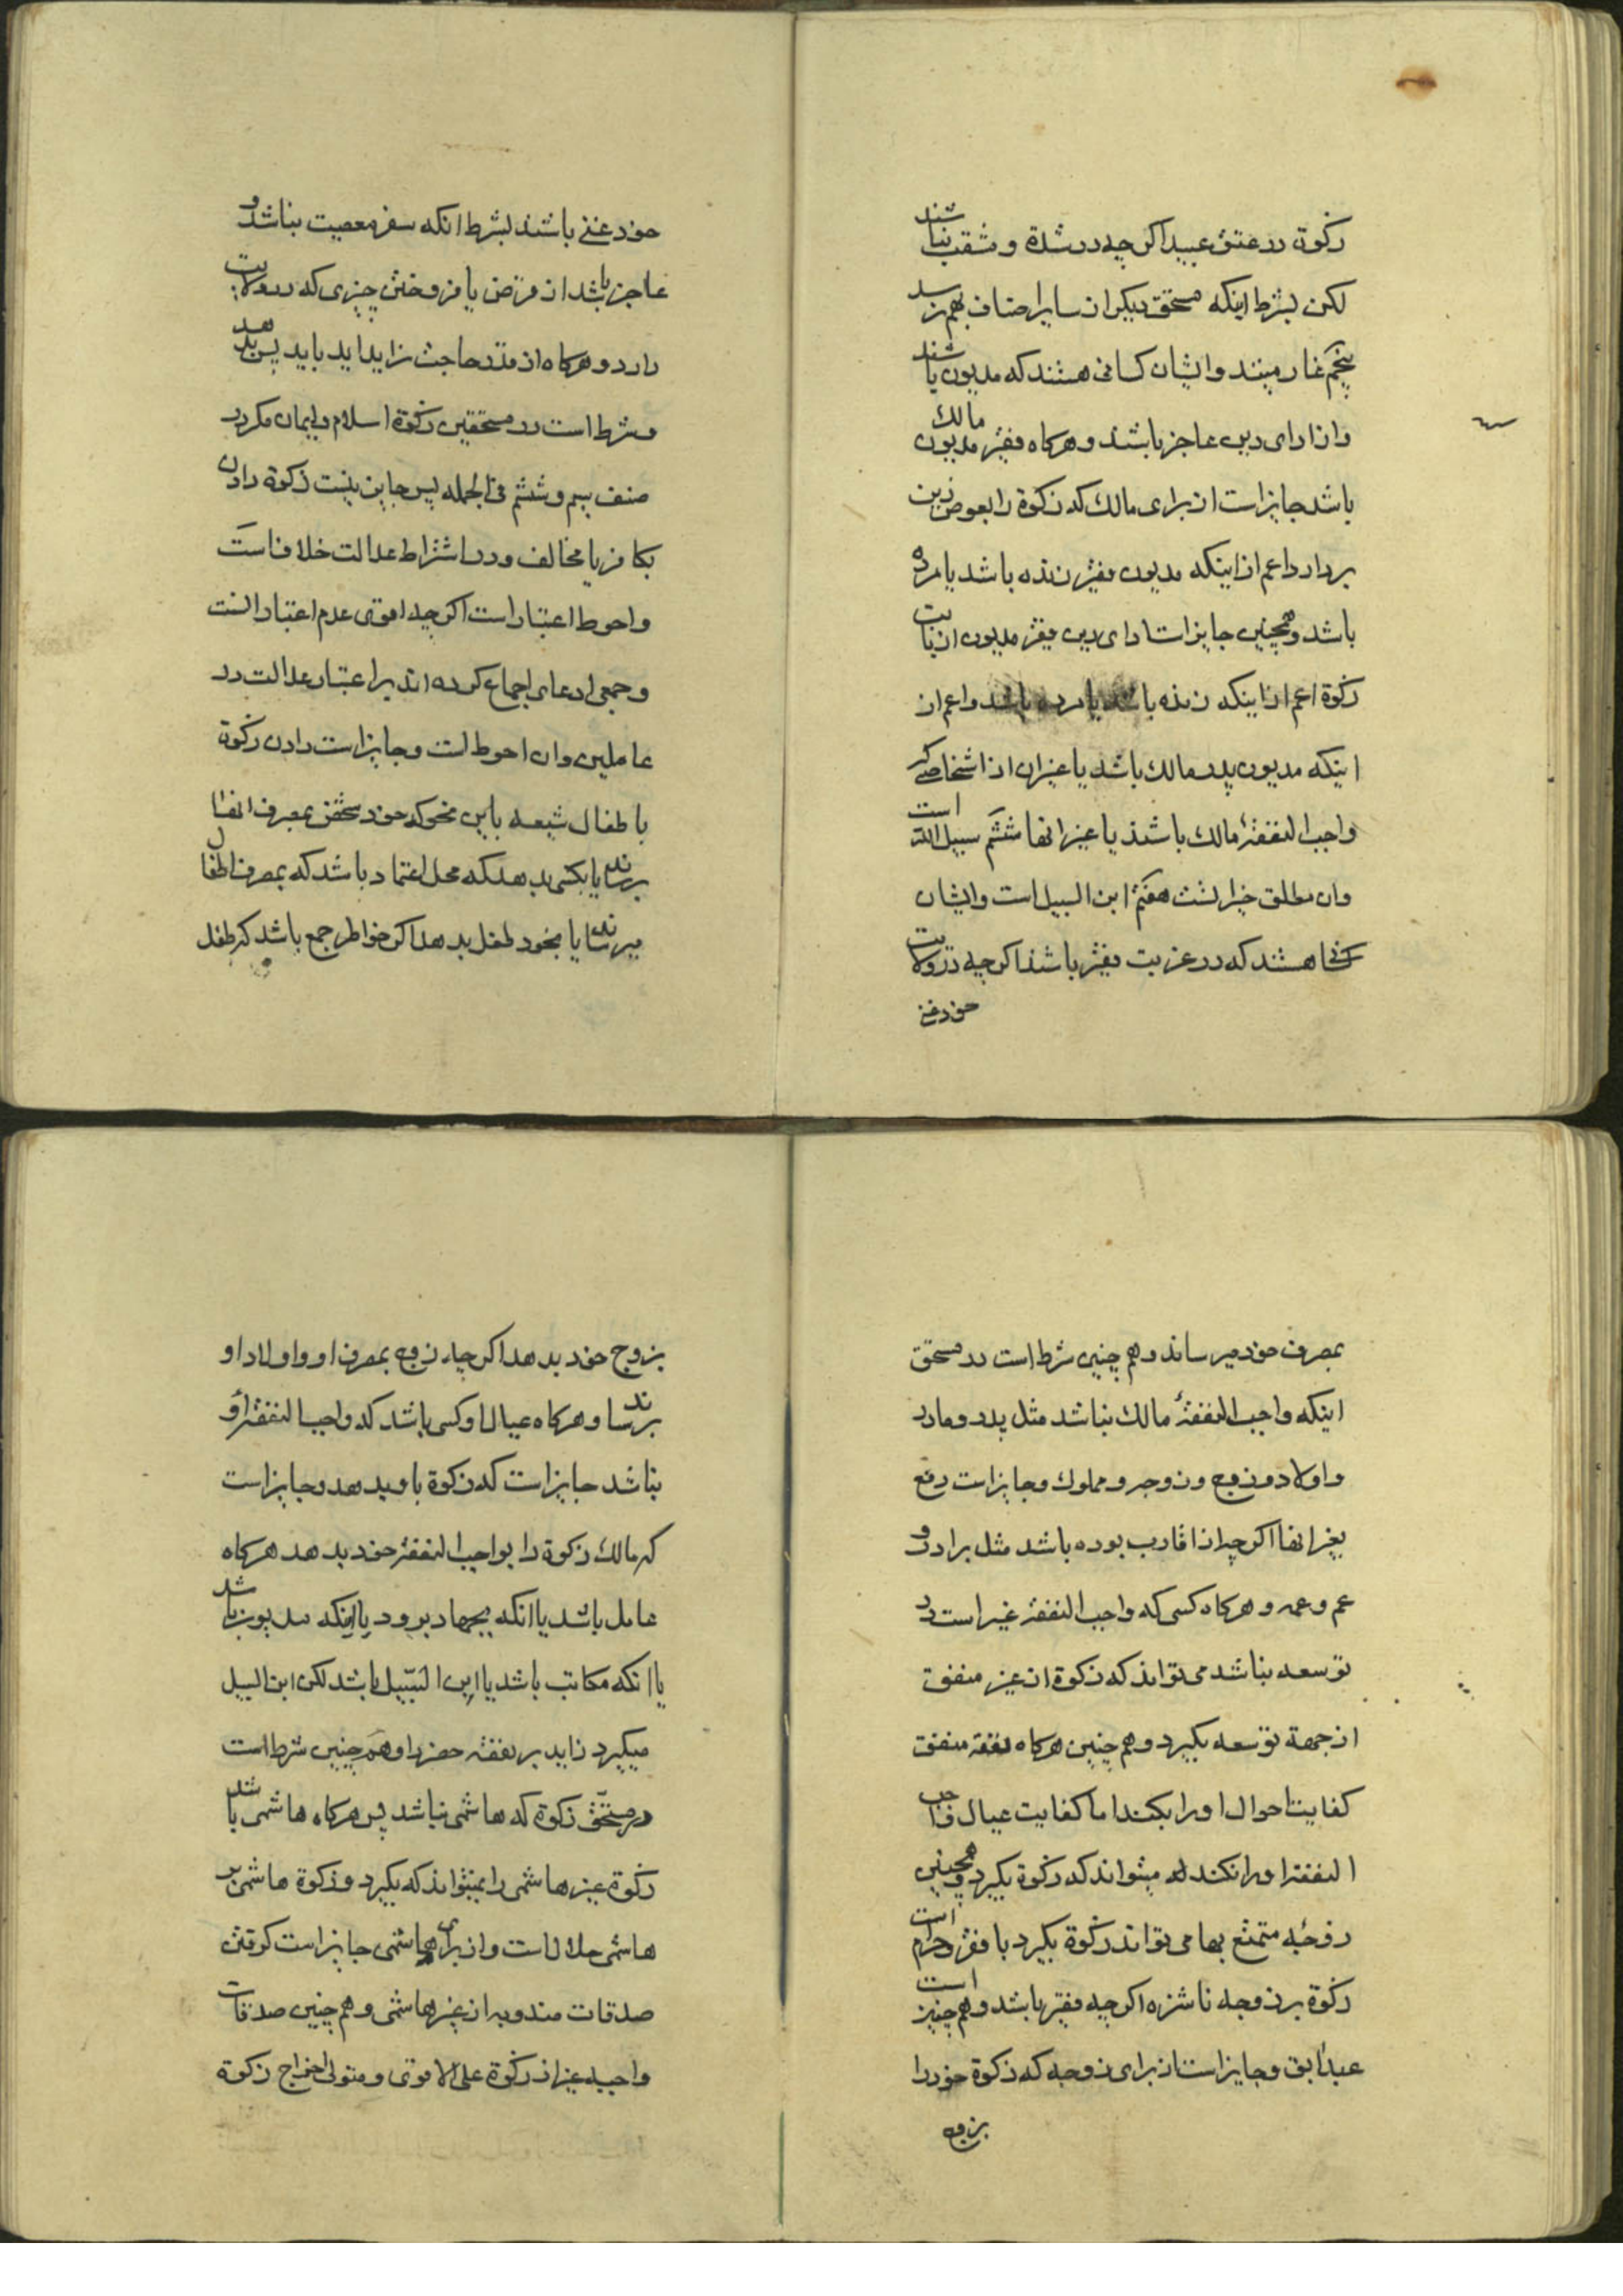 زکوة در عتق عبید اکر چه در شدة و مشقت نباشند
لکن بشرط اینکه مستحق دیکر از سایر اصناف بهم نرسد
پنجم غارمینند و ایشان کسانی هستند که مدیون باشند
و از ادای دین عاجز باشند و هرکاه فقیر مدیون مالک
باشد جایز است از برای مالک که زکوة را بعوض دین
بردارد اعم از اینکه مدیون فقیر زنده باشد یا مرده
باشد و همچنین جایز است ادای دین فقیر مدیون از بابت
زکوة اعم از اینکه زنده باشد یا مرده باشد و اعم از
اینکه مدیون پدر مالک باشد یا غیر ان از اشخاصی که
واجب النفقهٔ مالک باشند یا غیر انها ششم سبیل الله است
و ان مطلق خیر است هفتم ابن السبیل است و ایشان
کسانی هستند که در غربت فقیر باشند اکر چه در ولایت
خود غنی
خود غنی باشند بشرط انکه سفر معصیت نباشد و
عاجز باشد از قرض یا فروختن چیزی که در ولایت
دارد و هرکاه از قدر حاجت زاید اید باید پس بدهد
و شرط است در مستحقین زکوة اسلام و ایمان مکر در
صنف سیم و ششم فی الجمله پس جایز نیست زکوة دادن
بکافر یا مخالف و در اشتراط عدالت خلاف است
و احوط اعتبار است اکر چه اقوی عدم اعتبار است
و جمعی ادعای اجماع کرده اند بر اعتبار عدالت در
عاملین و ان احوط است و جایز است دادن زکوة
باطفال شیعه باین نحو که خود شخص بمصرف انها
برساند یا بکسی بدهد که محل اعتماد باشد که بمصرف اطفال
میرساند یا بخود طفل بدهد اکر خواطر جمع باشد که طفل
بمصرف خود میرساند و هم چنین شرط است در مستحق
اینکه واجب النفقهٔ مالک نباشد مثل پدر و مادر
و اولاد و زوج و زوجه و مملوک و جایز است دفع
بغیر انها اکر چه از اقارب بوده باشد مثل برادر و
عم و عمه و هرکاه کسی که واجب النفقه غیر است در
توسعه نباشد می تواند که زکوة از غیر منفق
از جهة توسعه بکیرد و هم چنین هرکاه نفقه منفق
کفایت احوال او را بکند اما کفایت عیال واجب
النفقه او را نکند میتواند که زکوة بکیرد و همچنین
زوجهٔ متمتع بها می تواند زکوة بکیرد با فقر و حرام است
زکوة بر زوجه ناشزه اکر چه فقیر باشد و هم چنین است
عبد ابق و جایز است از برای زوجه که زکوة خود را
بزوج
بزوج خود بدهد اکر چه زوج بمصرف او و اولاد او
برساند و هرکاه عیال او کسی باشد که واجب النفقهٔ او
نباشد جایز است که زکوة باو بدهد و جایز است
که مالک زکوة را بواجب النفقه خود بدهد هرکاه
عامل باشد یا انکه بجهاد برود یا اینکه مدیون باشد
یا انکه مکاتب باشد یا ابن السبیل باشد لکن ابن السبیل
میکیرد زاید بر نفقه حضر را و هم چنین شرط است
در مستحق زکوة که هاشمی نباشد پس هرکاه هاشمی باشد
زکوة غیر هاشمی را نمیتواند که بکیرد و زکوة هاشمی بر
هاشمی حلال است و از برای هاشمی جایز است کرفتن
صدقات مندوبه از غیر هاشمی و هم چنین صدقات
واجبه غیر از زکوة علی الاقوی و متولی اخراج زکوة